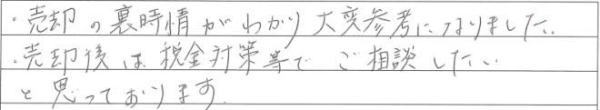 ・売却の裏事情がわかり大変参考になりました。
・売却後は税金対策等でご相談したい
と思っております。